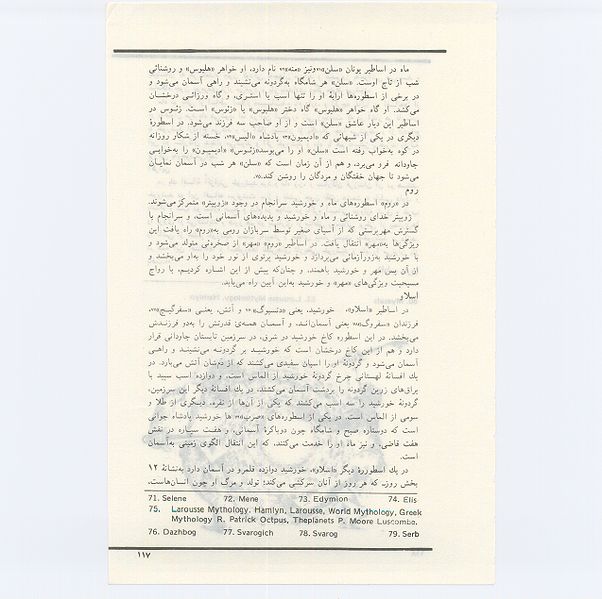 ماه در اساطیر یونان «سلن»۷۱ ونیز «منه»۷۲ نام دارد، او خواهر «هلیوس» و روشنائی
شب از تاج اوست. «سلن» هر شامگاه به‌گردونه می‌نشیند و راهی آسمان می‌شود و
در برخی از اسطوره‌ها ارابهٔ او را تنها اسب یا استری، و گاه ورزائی درخشان
می‌کشد. او گاه خواهر «هلیوس» گاه دختر «هلیوس» یا «زئوس» است. زئوس در
اساطیر این دیار عاشق «سلن» است و از او صاحب سه فرزند می‌شود. در اسطورهٔ
دیگری در یکی از شبهائی که «ادیمیون»۷۳ پادشاه «الیس»۷۴، خسته از شکار روزانه
در کوه به‌خواب رفته است «سلن» او را می‌بوسد«زئوس» «ادیمیون» را به‌خوابی
جاودانه فرو می‌برد، و هم از آن زمان است که «سلن» هر شب در آسمان نمایان
می‌شود تا جهان خفتگان و مردگان را روشن کند.۷۵
روم
در «روم» اسطوره‌های ماه و خورشید سرانجام در وجود «ژوپیتر» متمرکز می‌شوند.
ژوپیتر خدای روشنائی و ماه و خورشید و پدیده‌های آسمانی است، و سرانجام با
گسترش مهرپرستی که از آسیای صغیر توسط سربازان رومی به«روم» راه یافت این
ویژگی‌ها به«مهر» انتقال یافت. در اساطیر «روم» «مهر» از صخره‌ئی متولد می‌شود و
با خورشید به‌زورآزمائی می‌پردازد و خورشید پرتوی از نور خود را به‌او می‌بخشد و
از آن پس مهر و خورشید باهمند، و چنان‌که پیش از این اشاره کردیم، با رواج
مسیحیت ویژگی‌های «مهر» و خورشید به‌این آیین راه می‌یابد.
اسلاو
در اساطیر «اسلاو»، خورشید، یعنی «دتسبوگ»۷۶ و آتش، یعنی «سفرگیچ»۷۷،
فرزندان «سفروگ»۷۸ یعنی آسمان‌اند، و آسمان همه‌ی قدرتش را به‌دو فرزندش
می‌بخشد. در این اسطوره کاخ خورشید در شرق، در سرزمین تابستان جاودانی قرار
دارد و هم از این کاخ درخشان است که خورشید بر گردونه می‌نشیند و راهی
آسمان می‌شود و گردونهٔ او را اسبان سفیدی می‌کشند که از دمشان آتش می‌بارد. در
یك افسانهٔ لهستانی چرخ گردونهٔ خورشید از الماس است، و دوازده اسب سپید با
یراق‌های زرین گردونه را بردشت آسمان می‌کشند. در یك افسانهٔ دیگر این سرزمین،
گردونهٔ خورشید را سه اسب می‌کشند که یکی از آن‌ها از نقره، دیگری از طلا و
سومی از الماس است. در یکی از اسطوره‌های «صرب»۷۹ ها خورشید پادشاه جوانی
است که دوستاره صبح و شامگاه چون دوباکرهٔ آسمانی، و هفت سیاره در نقش
هفت قاضی، و نیز ماه او را خدمت می‌کنند، که این انتقال الگوی زمینی به‌آسمان
است.
در یك اسطورهٔ دیگر «اسلاو»، خورشید دوازده قلمرو در آسمان دارد به‌نشانهٔ ۱۲
بخش روزـ که هر روز از آنان سرکشی می‌کند؛ تولد و مرگ او چون انسان‌هاست.
71. Selene 72. Mene 73. Edymion 74. Elis
75. Larousse Mythology. Hamlyn, Larousse, World Mythology, Greek
Mythology R. Patrick Octpus, Theplanets P. Moore Luscombe.
76. Dazhbog 77. Svarogich 78. Svarog 79. Serb
۱۱۷